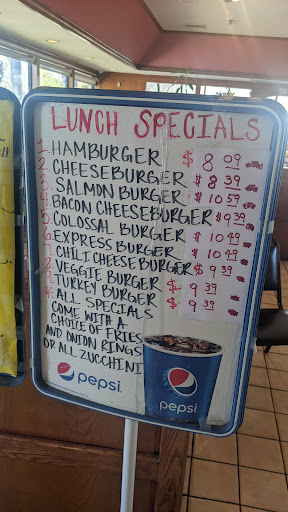 LUNCH SPECIALS
1. HAMBURGER $8 09
2. CHEESEBURGER $8 39
3. SALMON BURGER $10 59
4. BACON CHEESEBURGER $9 39
5. COLOSSAL BURGER $10 49
6. EXPRESS BURGER $10 49
7. CHILI CHEESE BURGER $9 39
8. VEGGIE BURGER $9 39
9. TURKEY BURGER $9 39
* ALL SPECIALS
COME WITH A
CHOICE OF FRIES
AND ONION RINGS
OR ALL ZUCCHINI
pepsi
pepsi